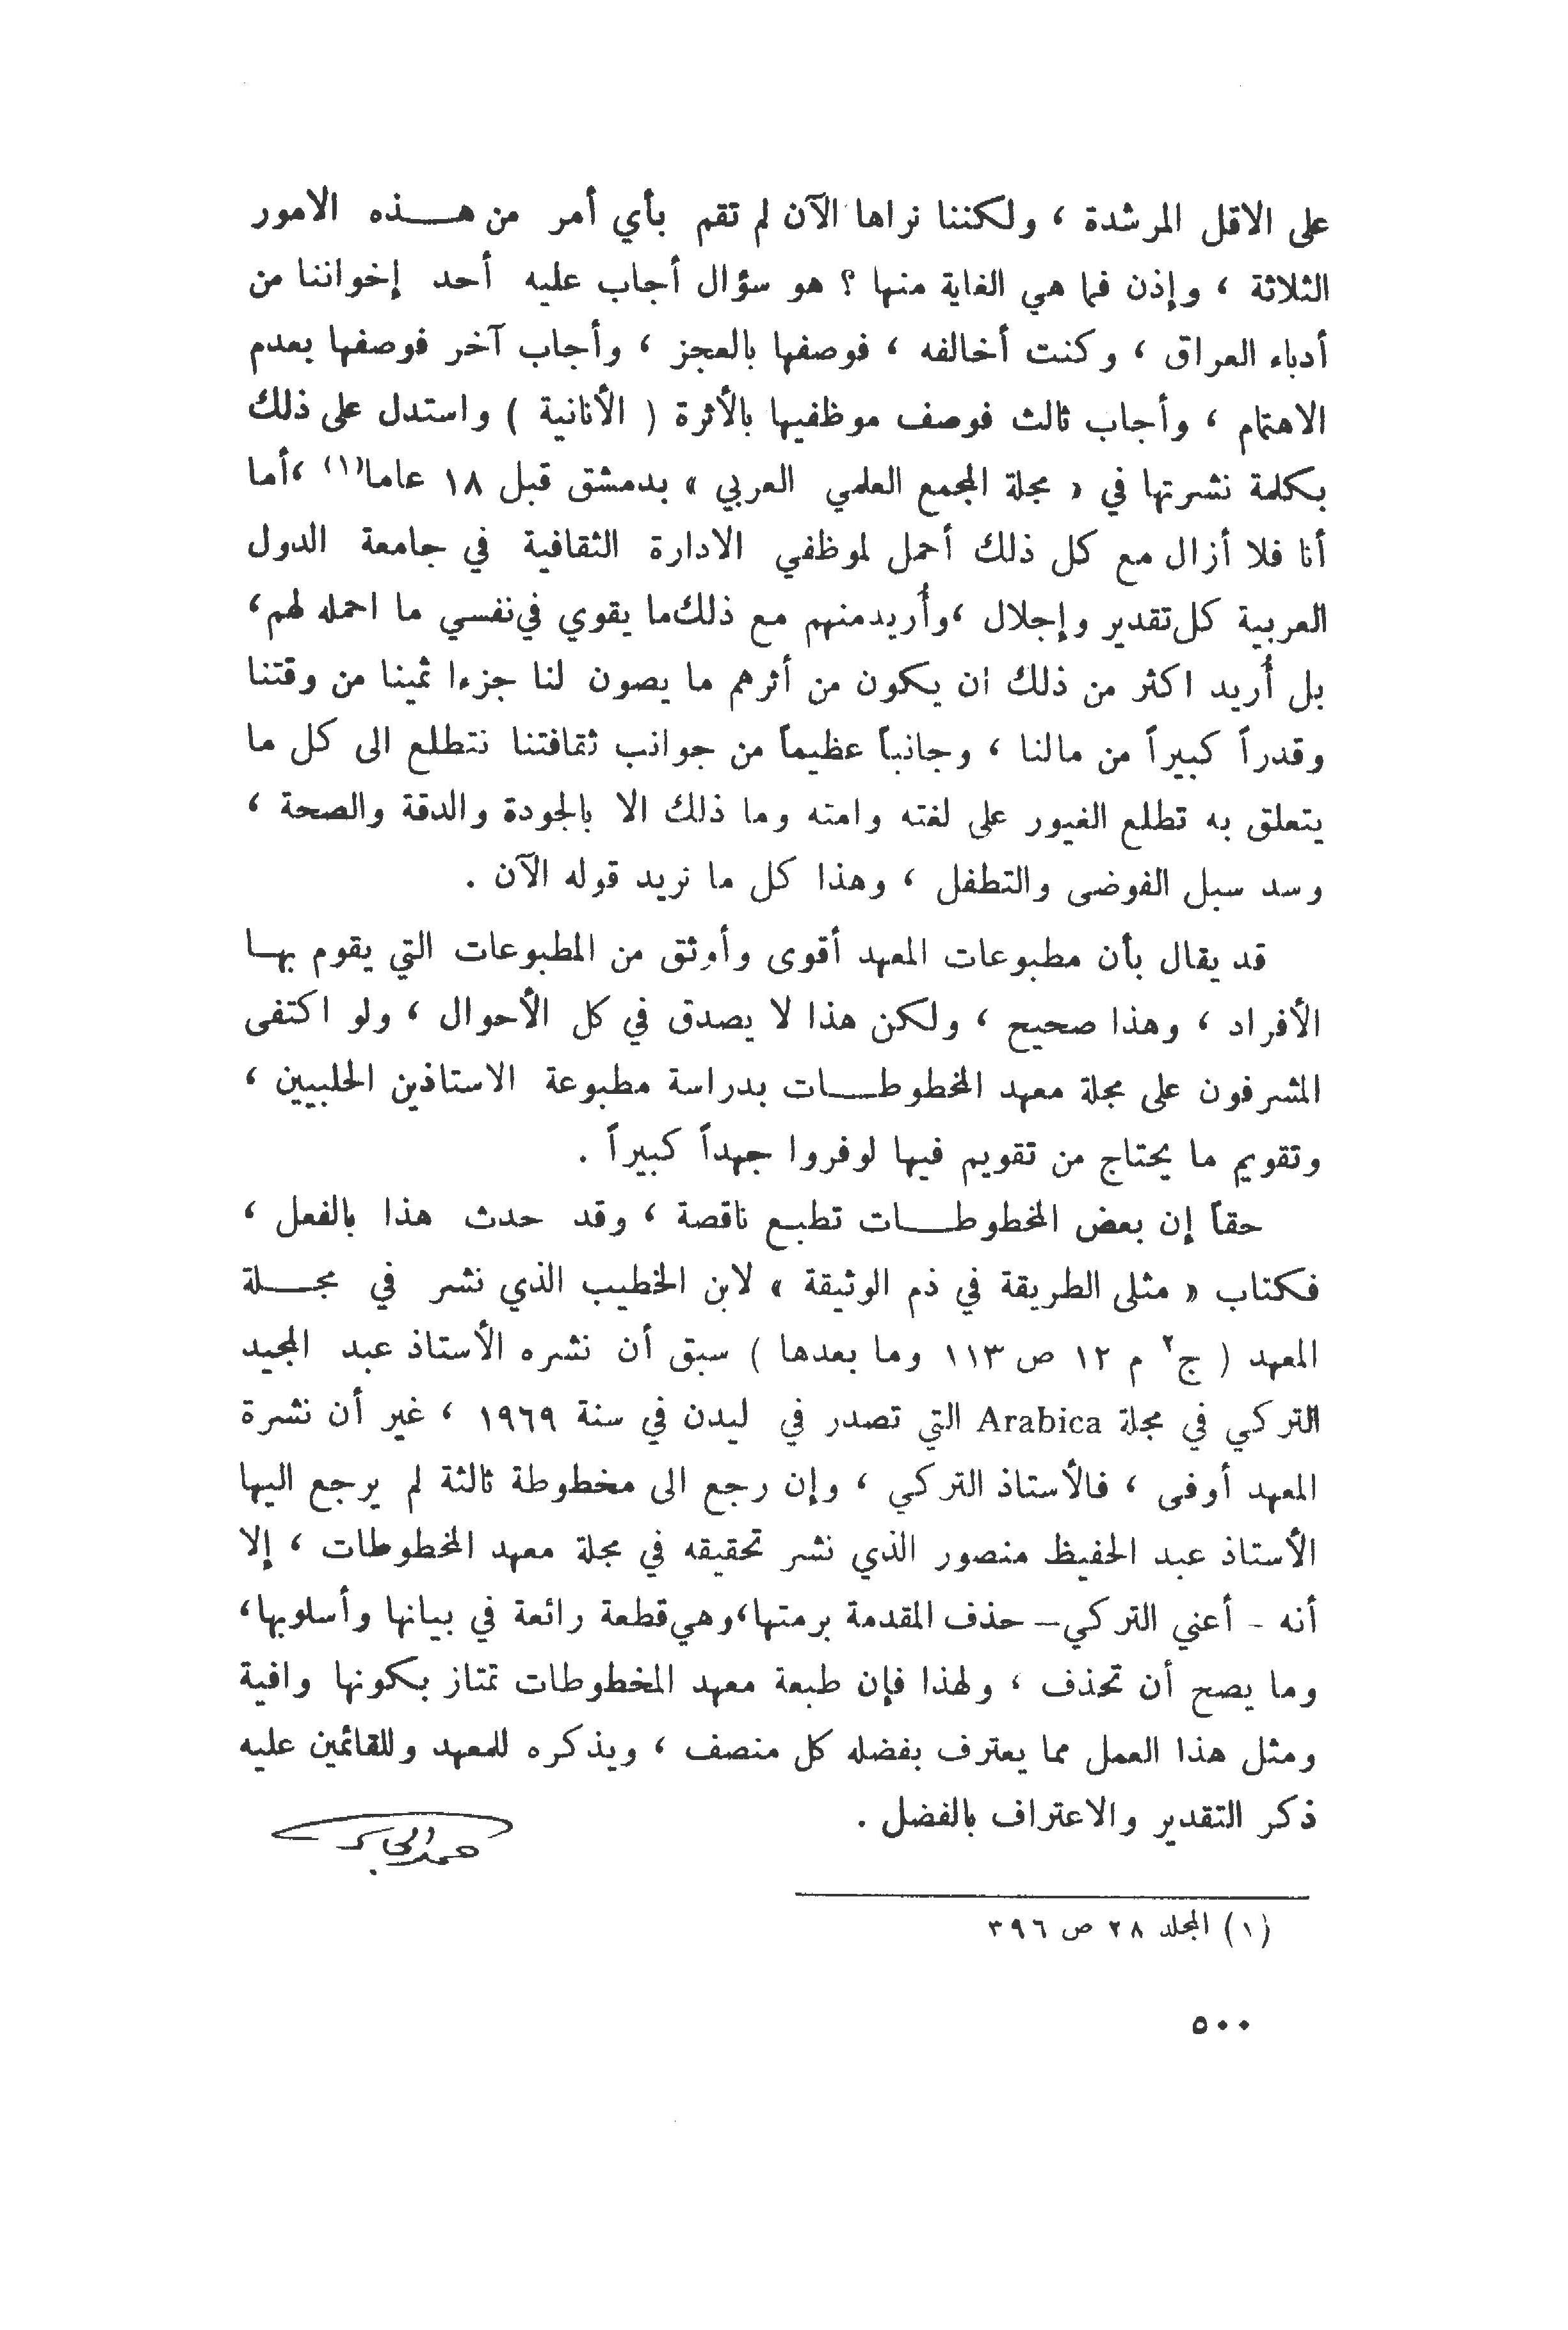 على الاقل المرشدة ، ولكننا نراها الآن لم تقم بأي أمر من هـــذه الامور
الثلاثة ، وإذن فما هي الغاية منها ؟ هو سؤال أجاب عليه أحد إخواننا من
أدباء العراق ، وكنت أخالفه ، فوصفها بالعجز ، وأجاب آخر فوصفها بعدم
الاهتمام ، وأجاب ثالث فوصف موظفيها بالأثرة ( الأنانية ) واستدل على ذلك
بكلمة نشرتها في « مجلة المجمع العلمي العربي » بدمشق قبل ١٨ عاما(١) ،أما
أنا فلا أزال مع كل ذلك أحمل لموظفي الادارة الثقافية في جامعة الدول
العربية كل تقدير وإجلال ،وأُريد منهم مع ذلك ما يقوي في نفسي ما احمله لهم،
بل أُريد اكثر من ذلك ان يكون من أثرهم ما يصون لنا جزءا ثمينا من وقتنا
وقدراً كبيراً من مالنا ، وجانباً عظيماً من جوانب ثقافتنا نتطلع الى كل ما
يتعلق به تطلع الغيور على لغته وامته وما ذلك الا بالجودة والدقة والصحة ،
وسد سبل الفوضى والتطفل ، وهذا كل ما نريد قوله الآن .
قد يقال بأن مطبوعات المعهد أقوى وأوثق من المطبوعات التي يقوم بهـا
الأفراد ، وهذا صحيح ، ولكن هذا لا يصدق في كل الأحوال ، ولو اكتفى
المشرفون على مجلة معهد المخطوطـــات بدراسة مطبوعة الاستاذين الحلبيين ،
وتقويم ما يحتاج من تقويم فيها لوفروا جهداً كبيراً .
حقاً إن بعض المخطوطـــات تطبـع ناقصة ، وقد حدث هذا بالفعل ،
فكتاب « مثلى الطريقة في ذم الوثيقة » لابن الخطيب الذي نشر في مجـــلة
المعهد ( ج٢ م ١٢ ص ١١٣ وما بعدها ) سبق أن نشره الأستاذ عبد المجيد
التركي في مجلة Arabica التي تصدر في ليدن في سنة ١٩٦٩ ، غير أن نشرة
المعهد أوفى ، فالأستاذ التركي ، وإن رجع الى مخطوطة ثالثة لم يرجع اليها
الأستاذ عبد الحفيظ منصور الذي نشر تحقيقه في مجلة معهد المخطوطات ، إلا
أنه - أعني التركي – حذف المقدمة برمتها،وهي قطعة رائعة في بيانها وأسلوبها،
وما يصح أن تحذف ، ولهذا فإن طبعة معهد المخطوطات تمتاز بكونها وافية
ومثل هذا العمل مما يعترف بفضله كل منصف ، ويذكره للمعهد وللقائمين عليه
ذكر التقدير والاعتراف بالفضل .
حمد الجاسر
(١) المجلد ٢٨ ص ٣٩٦
٥٠٠